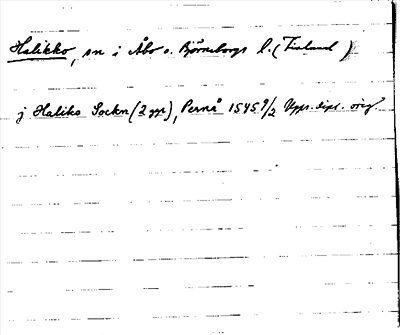 Halikko, sn i Åbo o. Björneborgs l. (Finland)
j Haliko Sockn (2 ggr), Pernå 1545 9/2 Upps. dipl. orig